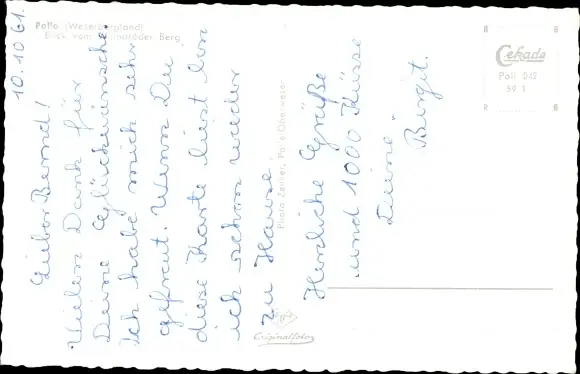 Polle (Weserbergland)
Blick vom Berg
10.10.61.
Lieber Bernd!
Vielen Dank für
Deine Glückwünsche.
Ich habe mich sehr
gefreut. Wenn Du
diese Karte liest bin
ich schon wieder
zu Hause.
Herzliche Grüße
und 1000 Küsse
Deine
Birgit.
Photo Zenker, Polle-Oberweser
Cekade
Poll 942
59 1
Originalfoto